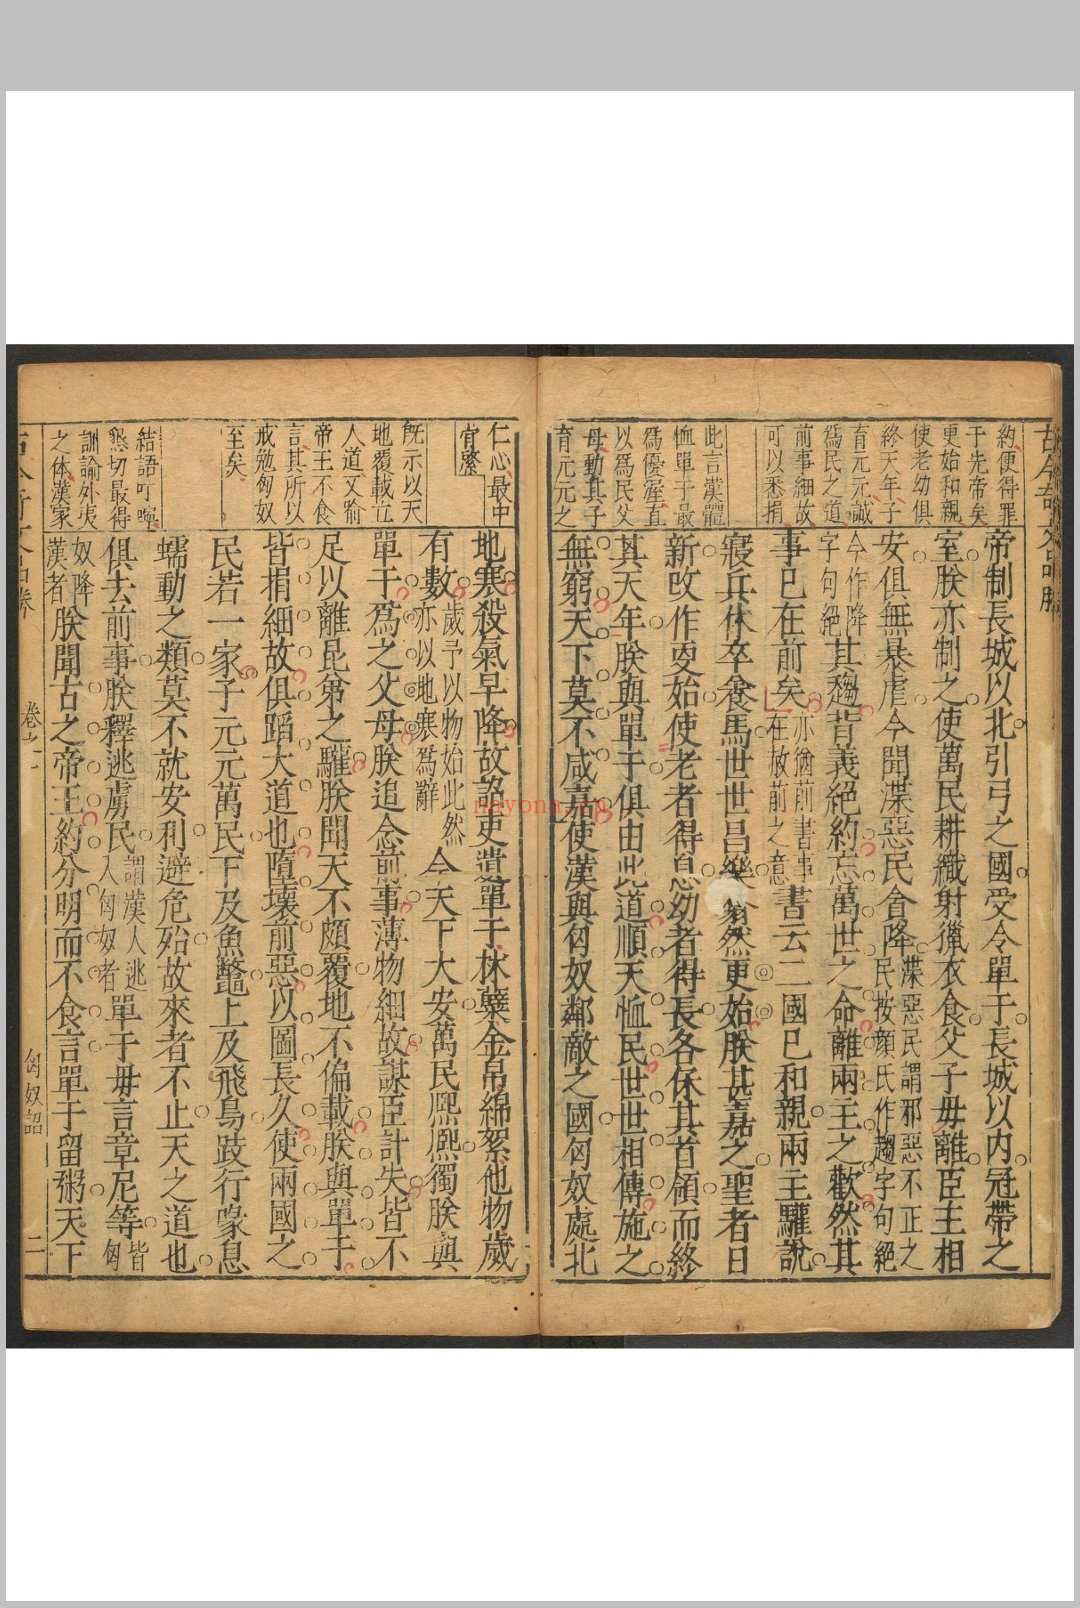 古今奇文品勝
約便得罪
于先帝矣
更始和親
使老幼俱
終天年子
育元元誠
爲民之道
前事細故
可以悉捐
此言漢體
恤單于最
爲優渥直
以爲民父
母動其子
育元元之
帝制長城以北引弓之國受令單于長城以內冠帶之
室朕亦制之使萬民耕織射獵衣食父子毋離臣主相
安俱無暴虐今聞渫惡民會降渫惡民謂邪惡不正之民按顔氏作趨字句絕
今作降字句絕其趨背義絕約忘萬世之命離兩主之歡然其
事已在前矣亦猶前書事在赦前之意書云二國已和親兩主驩說
寢兵休卒養馬世世昌樂翕然更始朕甚嘉之聖者日
新改作更始使老者得息幼者得長各保其首領而終
其天年朕與單于俱由此道順天恤民世世相傳施之
無窮天下莫不咸嘉使漢與匈奴鄰敵之國匈奴處北
仁心最中
肯綮
旣示以天
地覆載立
人道又喻
帝王不食
言其所以
戒勉匈奴
至矣
結語叮嚀
懇切最得
訓諭外夷
之体漢家
地寒殺氣早降故詔吏遺單于秫糵金帛綿絮他物歲
有數歲予以物始此然亦以地寒爲辭今天下大安萬民熙熙獨朕與
單于爲之父母朕追念前事薄物細故謀臣計失皆不
足以離昆弟之驩朕聞天不頗覆地不偏載朕與單于
皆捐細故俱蹈大道也墮壞前惡以圖長久使兩國之
民若一家子元元萬民下及魚鼈上及飛鳥跂行喙息
蠕動之類莫不就安利避危殆故來者不止天之道也
俱去前事朕釋逃虜民謂漢人逃入匈奴者單于毋言章尼等皆匈
奴降漢者朕聞古之帝王約分明而不食言單于留粥天下
卷之一
匈奴詔
二
nayona.cn